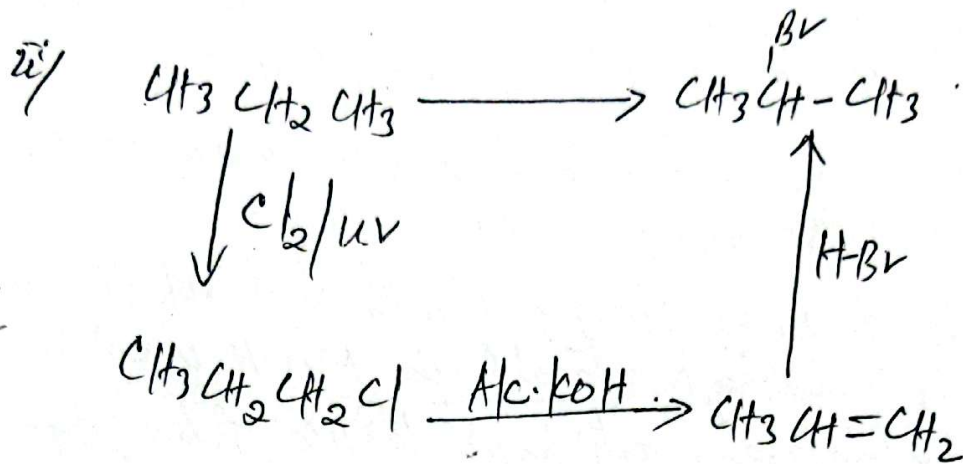 Br
ii/ CH3 CH2 CH3 ⟶ CH3 CH - CH3
Cl2/uv
H-Br
CH3 CH2 CH2 Cl Alc. KOH. ⟶ CH3 CH = CH2